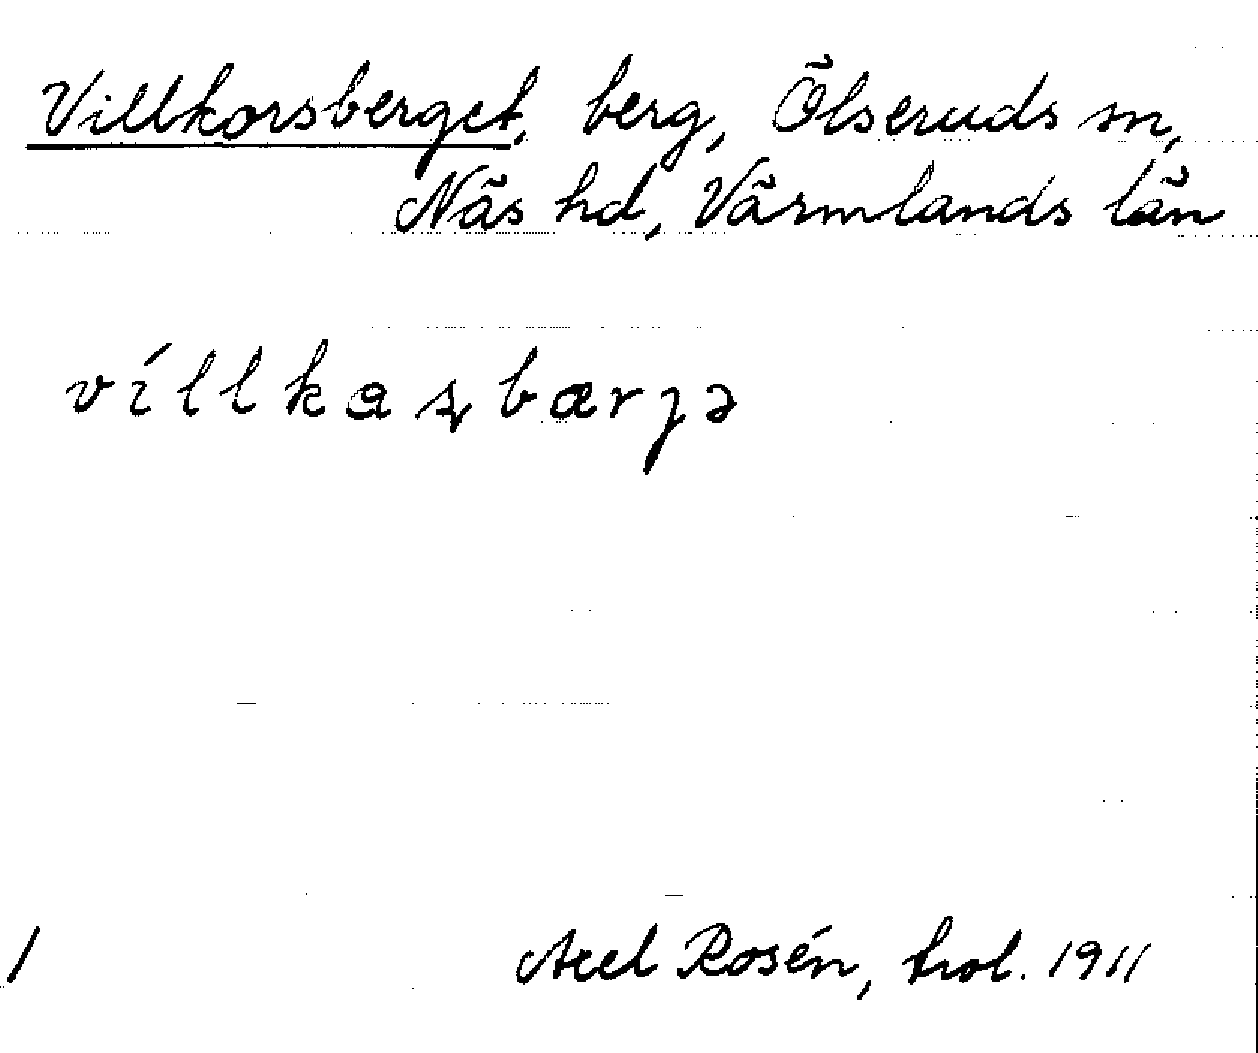 Villkorsberget, berg, Ölseruds sn,
Näs hd, Värmlands län
víllkaʂbærjə
/ Axel Rosén, trol. 1911